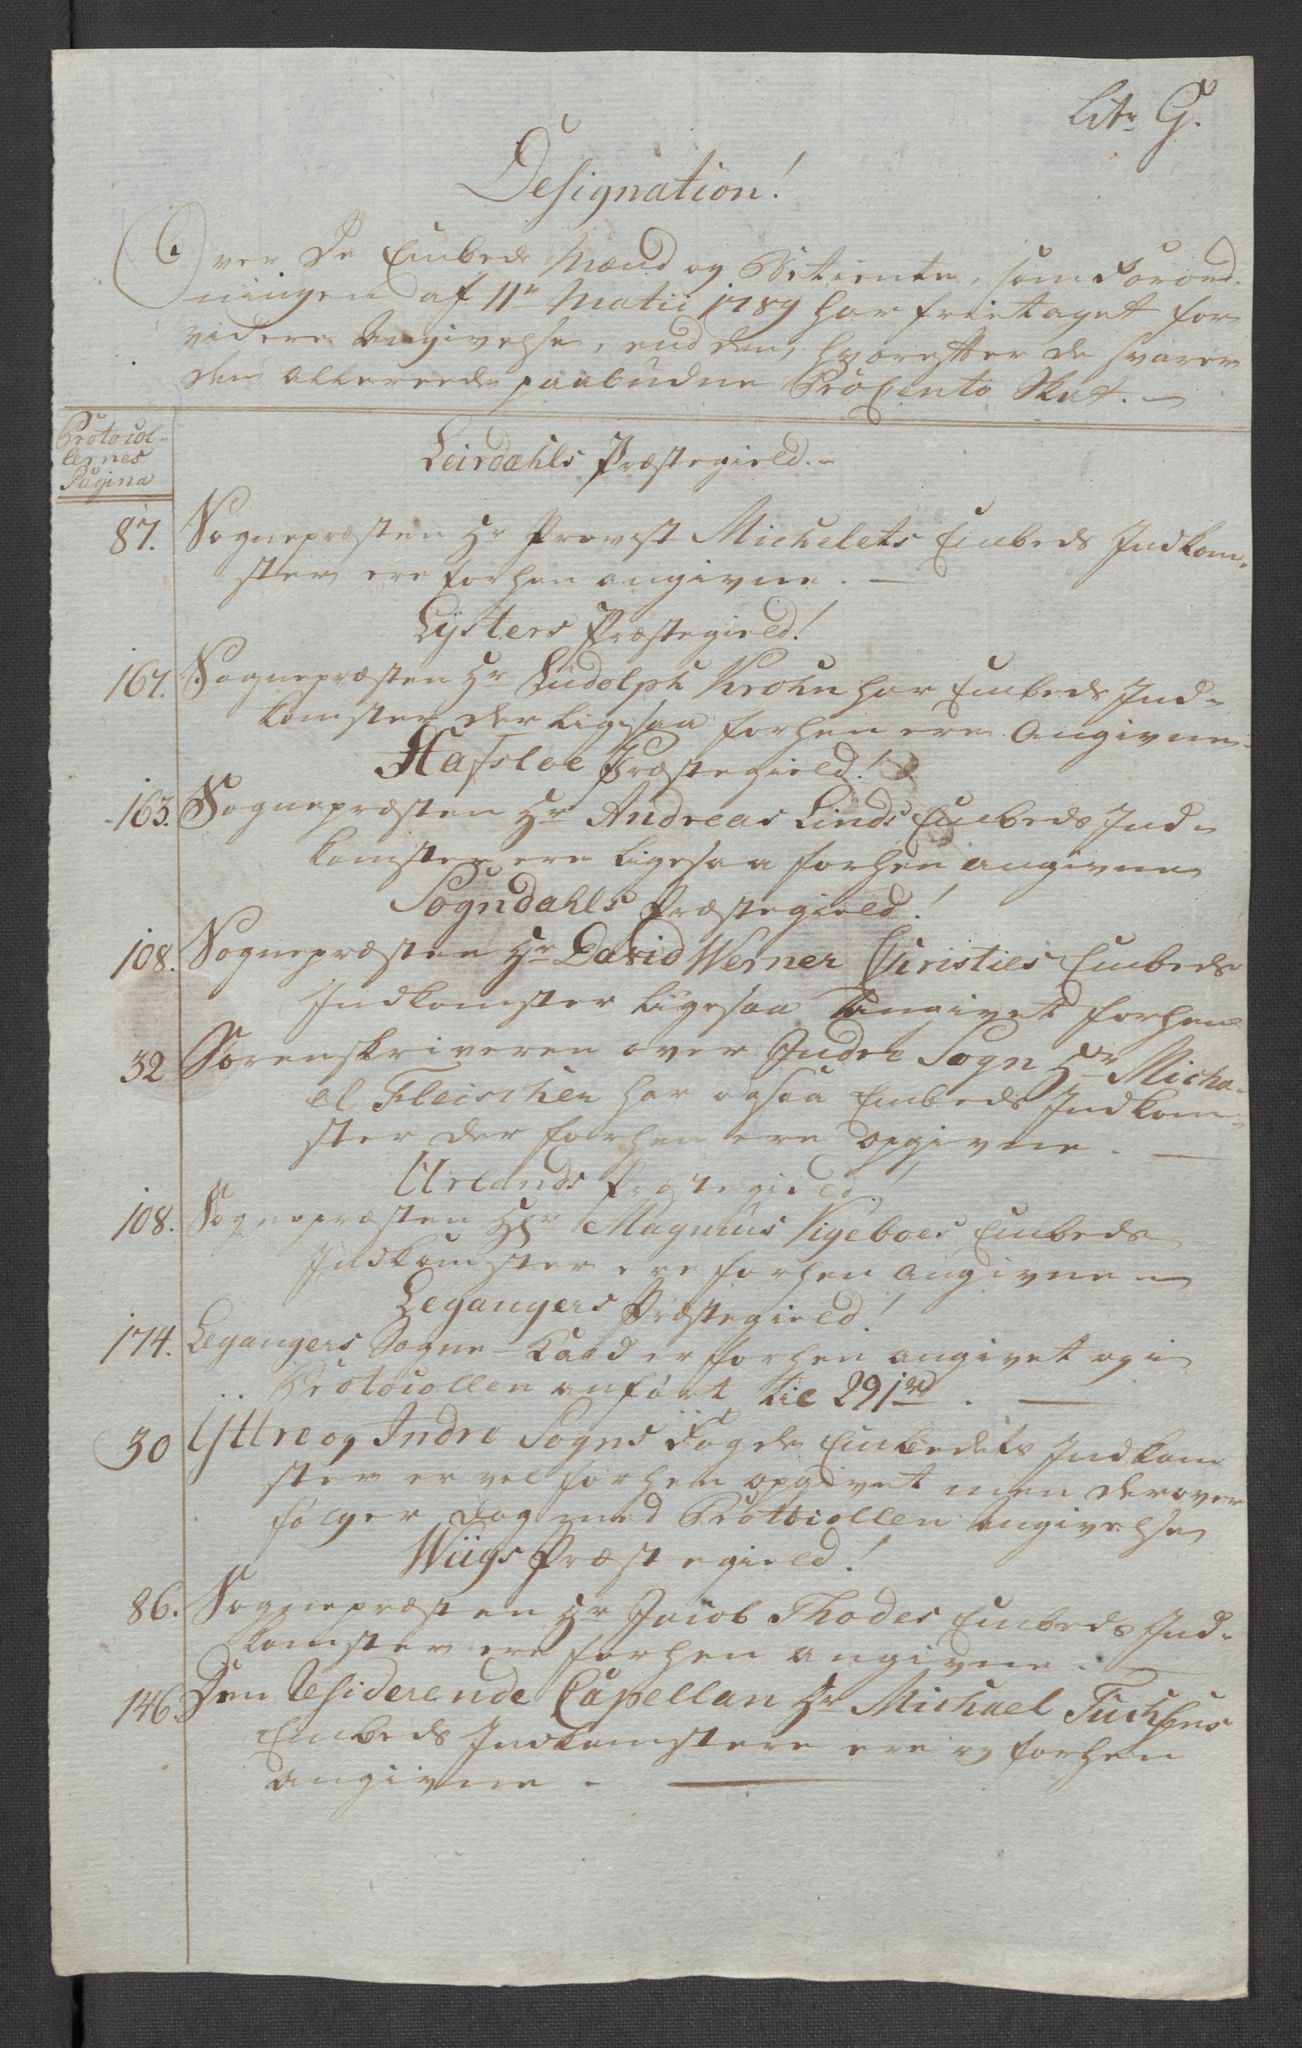 Litr G.
Designation!
Over De Embeds Mænd og Betiente, som Forord-
ningen af 11te Matii 1789 har frietaget for
videre Angivelse, end den, hvorefter de svarer
den allereede paabudne ProCento Skat. -
Protocol-
lernes
Pagina
Leirdahls Præstegield. -
87. Sognepræsten Hr Provst Michelets Embeds Indkom-
ster ere forhen angivne. -
Lysters Præstegield!
167. Sognepræsten Hr Ludolph Krohn har Embeds Ind-
komster der ligesaa forhen ere Angivne.
Hafsloe Præstegield!
163. Sognepræsten Hr Andreas Linds Embeds Ind-
komster ere ligesaa forhen angivne
Sogndahls Præstegield!
108. Sognepræsten Hr David Werner Christies Embeds
Indkomster ligesaa angivet forhen
32 Sorenskriveren over Indre Sogn Hr Micha-
el Fleischer har ogsaa Embeds Indkom-
ster der forhen ere opgivne. -
Urlands Præstegield!
108. Sognepræsten Hr Magnus Vigeboes Embeds
Indkomster ere forhen angivne -
Legangers Præstegield!
174. Legangers Sogne-Kald er forhen angivet og i
Protocollen anført til 291 rd. -
30 Yttre og Indre Sogns Fogde Embedets Indkom
ster er vel forhen opgivet men derover
følger dog med Protocollen angivelse
Wiigs Præstegield!
86. Sognepræsten Hr Jacob Thodes Embeds Ind-
komster ere forhen angivne. -
146. Den Residerende Capellan Hr Michael Fuchsius
Embeds Indkomstere ere og forhen
angivne - -